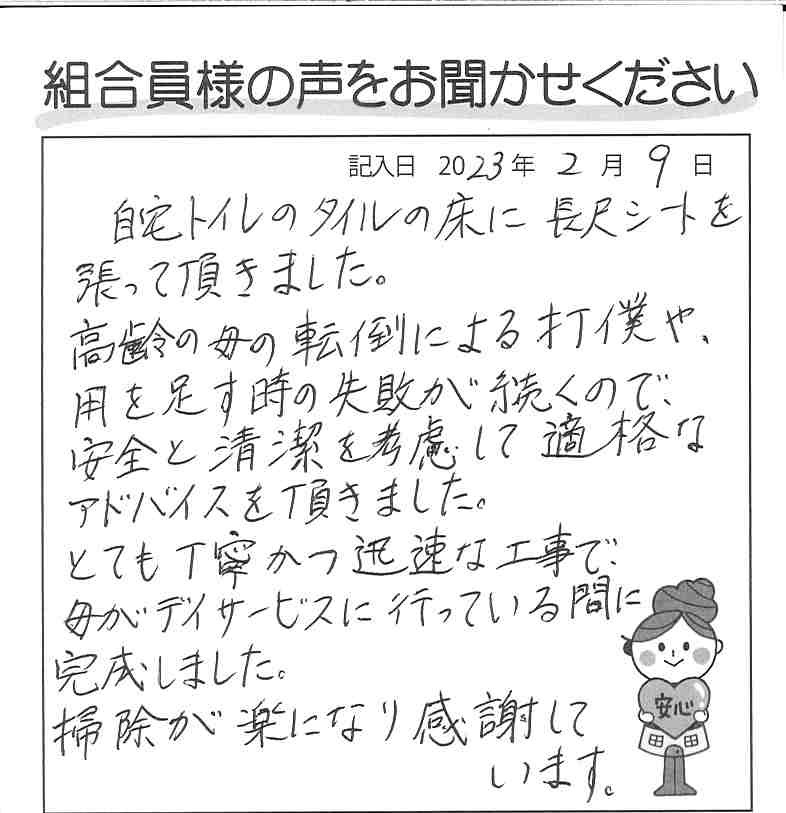 組合員様の声をお聞かせください
記入日 2023年 2月 9日
自宅トイレのタイルの床に 長尺シートを
張って頂きました。
高齢の母の転倒による打僕や、
用を足す時の失敗が続くので、
安全と清潔を考慮して適格な
アドバイスを頂きました。
とても丁寧かつ迅速な工事で、
母がデイサービスに行っている間に
完成しました。
掃除が楽になり感謝して
います。
安心